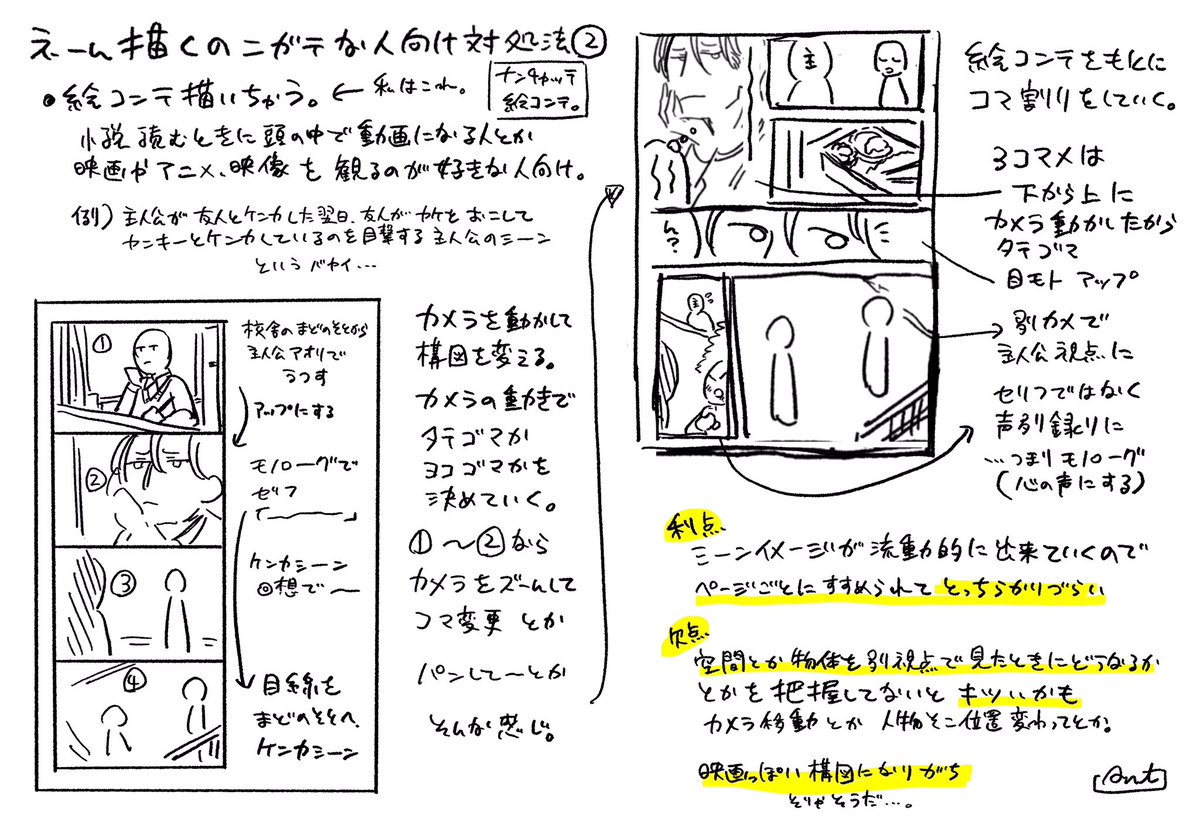 ネーム描くのニガテな人向け対処法②
・絵コンテ描いちゃう。← 私はこれ。
ナンチャッテ
絵コンテ。
小説読むときに頭の中で動画になる人とか
映画やアニメ、映像を観るのが好きな人向け。
例) 主人公が友人とケンカした翌日、友人がヤケをおこして
ヤンキーとケンカしているのを目撃する主人公のシーン
というバヤイ…
①
校舎のまどのそとから
主人公アオリで
うつす
アップにする
②
モノローグで
セリフ
「〜」
③
ケンカシーン
回想で〜
④
目線を
まどのそとへ、
ケンカシーン
カメラを動かして
構図を変える。
カメラの動きで
タテゴマか
ヨコゴマかを
決めていく。
①〜②なら
カメラをズームして
コマ変更とか
パンして〜とか
そんな感じ。
主
ん?
主
絵コンテをもとに
コマ割りをしていく。
3コマメは
下から上に
カメラ動かしたから
タテゴマ
目モトアップ
別カメで
主人公視点に
セリフではなく
声別録りに
…つまりモノローグ
(心の声にする)
利点
シーンイメージが流動的に出来ていくので
ページごとにすすめられてとっちらかりづらい
欠点
空間とか物体を別視点で見たときにどうなるか
とかを把握してないとキツいかも
カメラ移動とか人物そこ位置変わってとか。
映画っぽい構図になりがち
そりゃそうだ…。